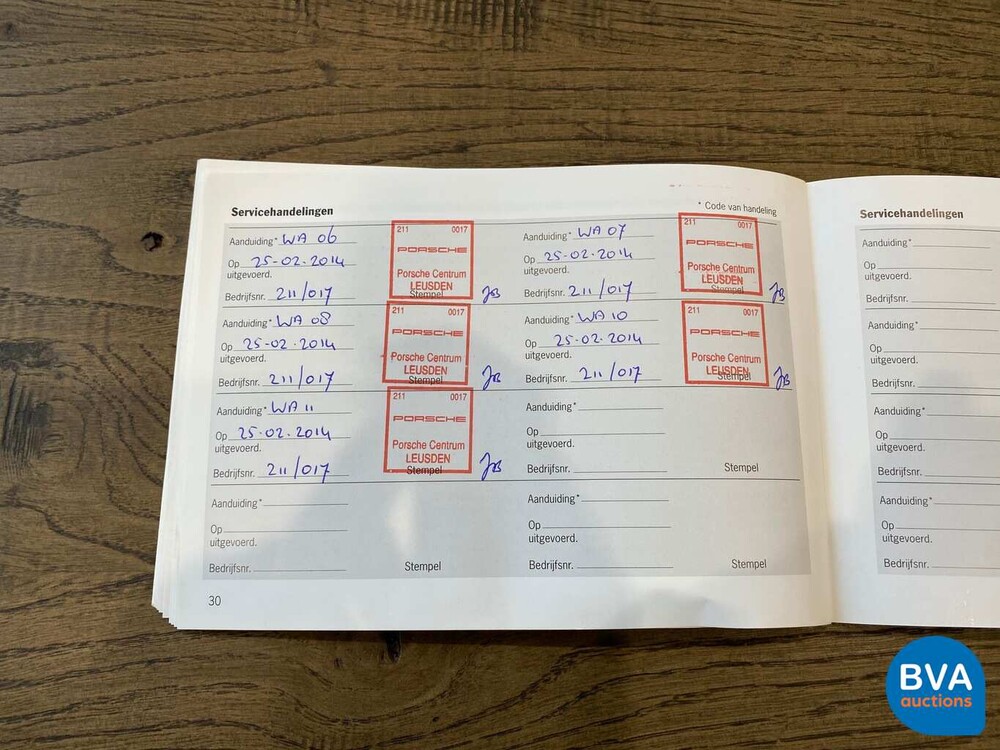 Servicehandelingen
* Code van handeling
Aanduiding* WA 06
Op 25-02-2014
uitgevoerd.
Bedrijfsnr. 211/017
211 0017
PORSCHE
Porsche Centrum
LEUSDEN
Stempel
JB
Aanduiding* WA 07
Op 25-02-2014
uitgevoerd.
Bedrijfsnr. 211/017
211 0017
PORSCHE
Porsche Centrum
LEUSDEN
Stempel
JB
Aanduiding* WA 08
Op 25-02-2014
uitgevoerd.
Bedrijfsnr. 211/017
211 0017
PORSCHE
Porsche Centrum
LEUSDEN
Stempel
JB
Aanduiding* WA 10
Op 25-02-2014
uitgevoerd.
Bedrijfsnr. 211/017
211 0017
PORSCHE
Porsche Centrum
LEUSDEN
Stempel
JB
Aanduiding* WA 11
Op 25-02-2014
uitgevoerd.
Bedrijfsnr. 211/017
211 0017
PORSCHE
Porsche Centrum
LEUSDEN
Stempel
JB
Aanduiding*
Op
uitgevoerd.
Bedrijfsnr. Stempel
Aanduiding*
Op
uitgevoerd.
Bedrijfsnr. Stempel
Aanduiding*
Op
uitgevoerd.
Bedrijfsnr. Stempel
30
Servicehandelingen
Aanduiding*
Op
uitgevoerd.
Bedrijfsnr.
Aanduiding*
Op
uitgevoerd.
Bedrijfsnr.
Aanduiding*
Op
uitgevoerd.
Bedrijfsnr.
Aanduiding*
Op
uitgevoerd.
Bedrijfsnr.
BVA
auctions